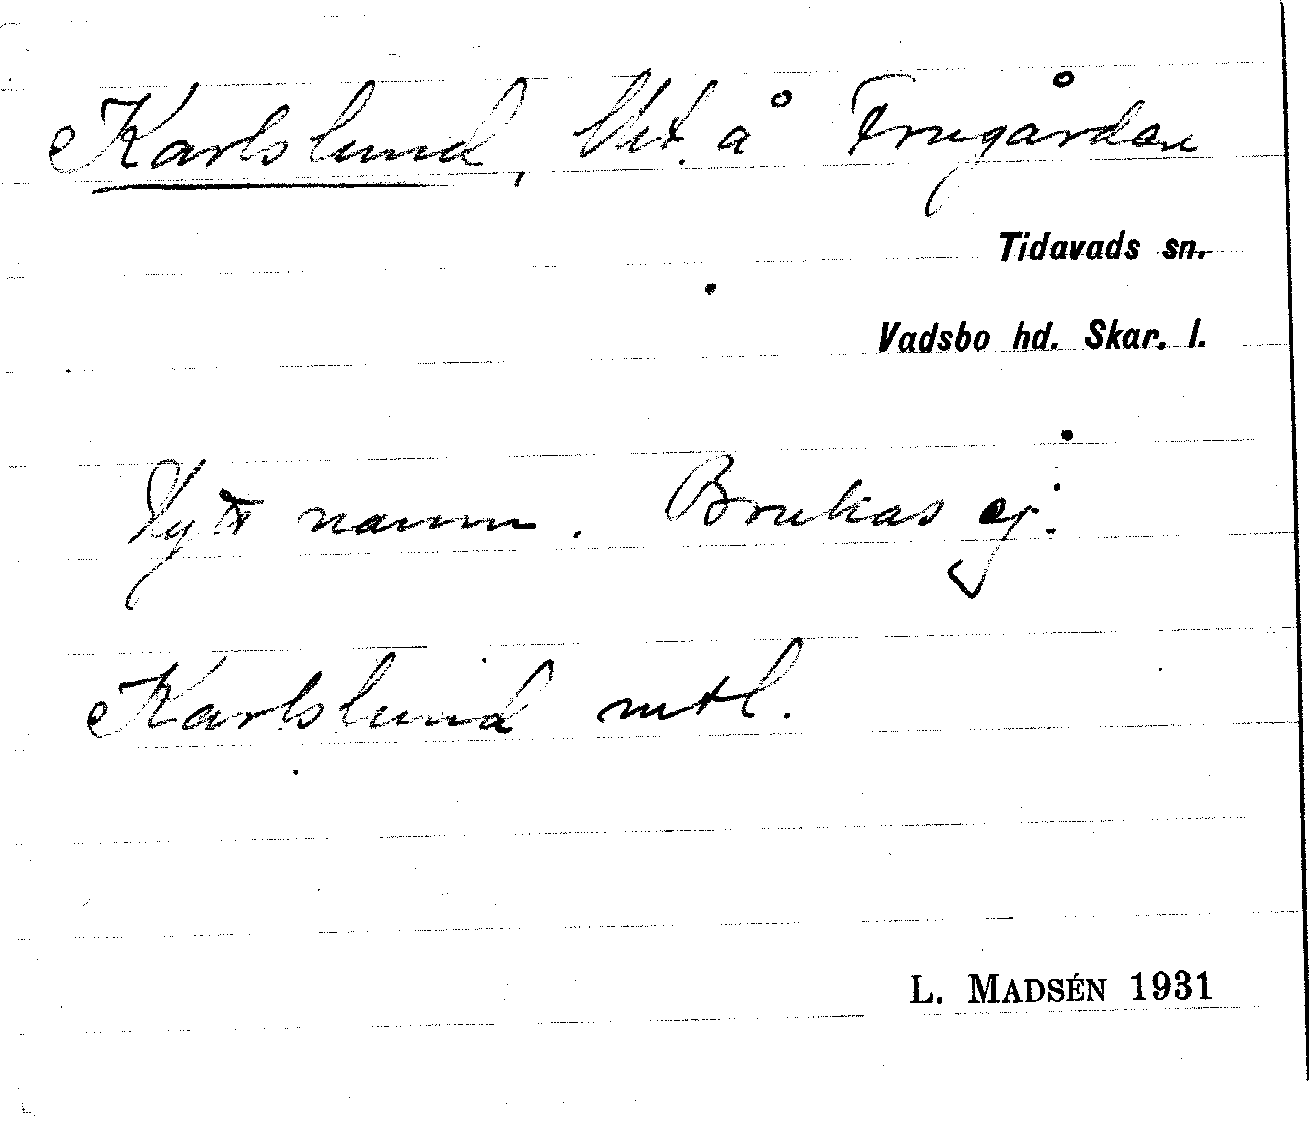 Karlslund, Utt. å Frugården
Tidavads sn.
Vadsbo hd. Skar. l.
Nytt namn. Brukas ej.
Karlslund mtl.
L. MADSÉN 1931